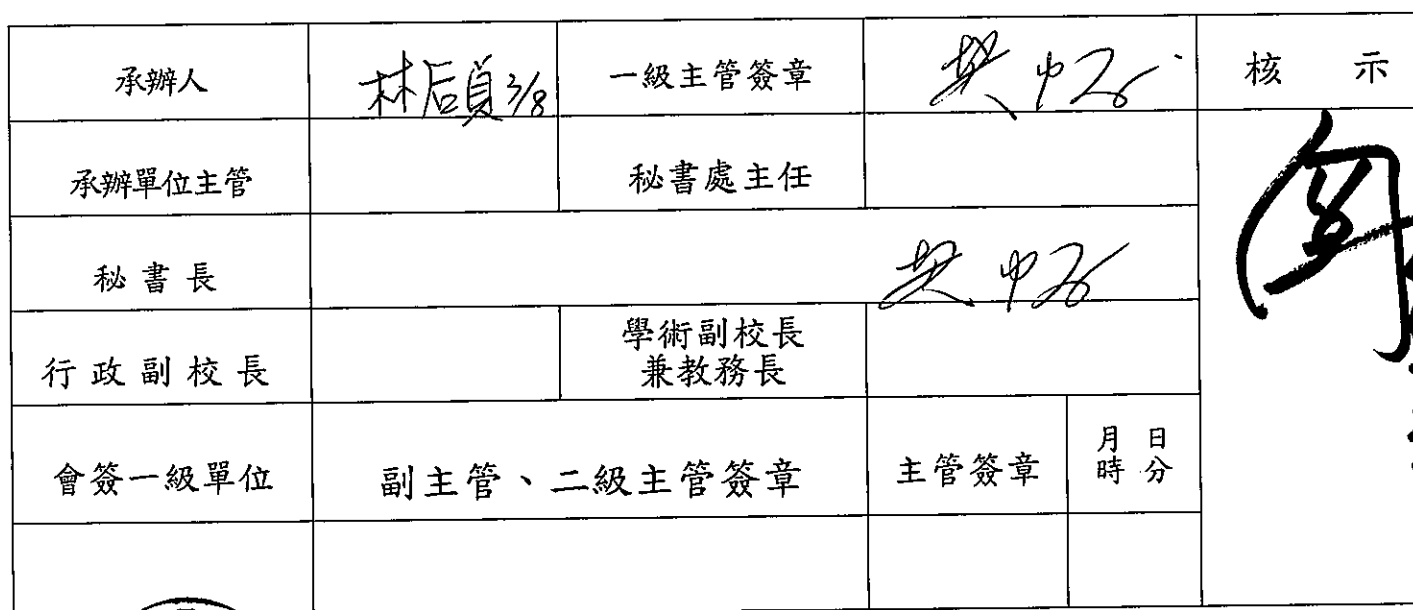 承辦人 林后貞 3/8 一級主管簽章 核 示
承辦單位主管 秘書處主任
秘書長
行政副校長 學術副校長
兼教務長
會簽一級單位 副主管、二級主管簽章 主管簽章 月 日
時 分